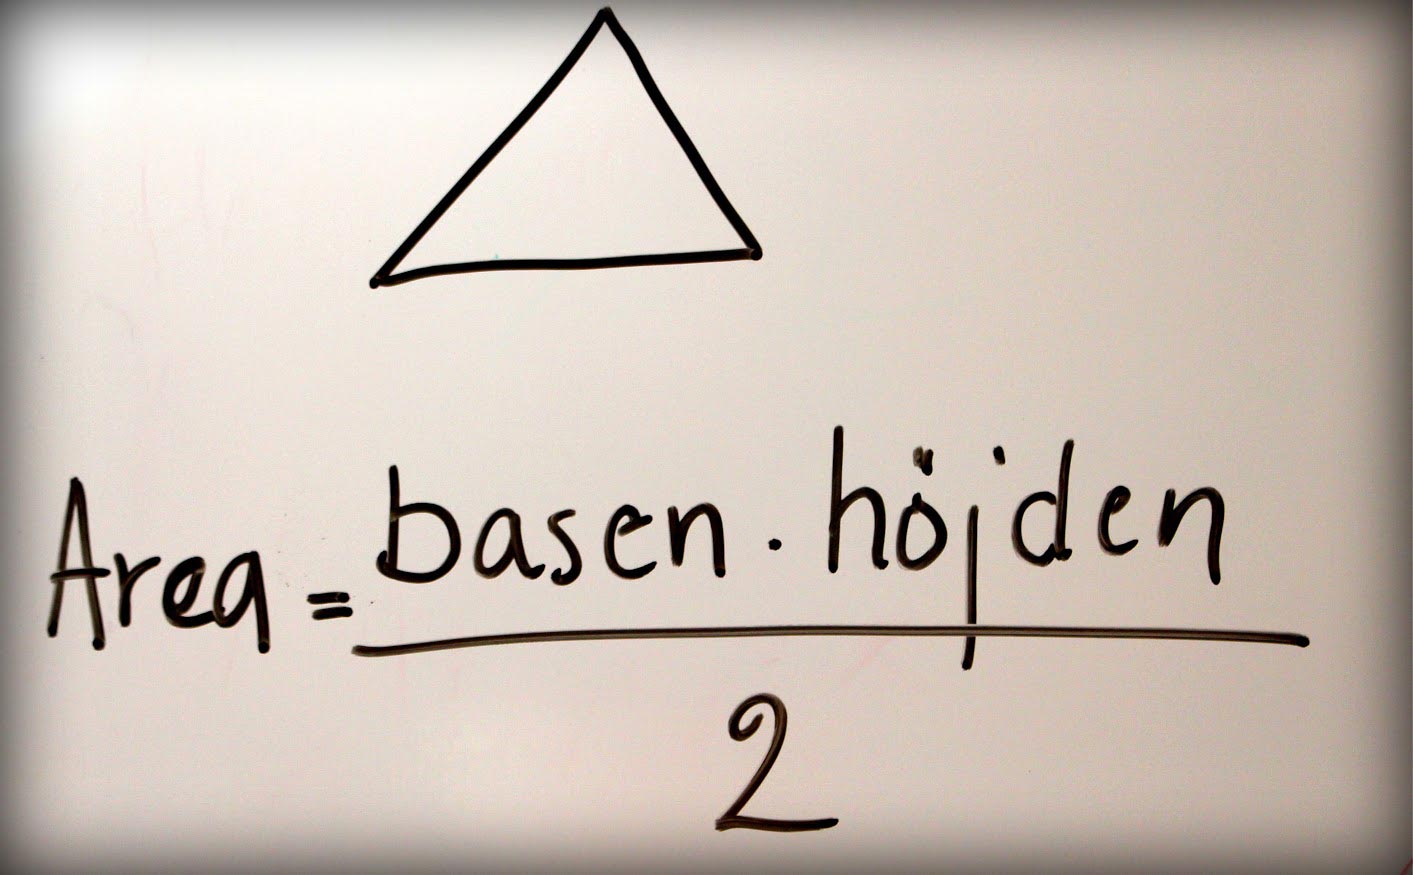 Area = basen · höjden
2